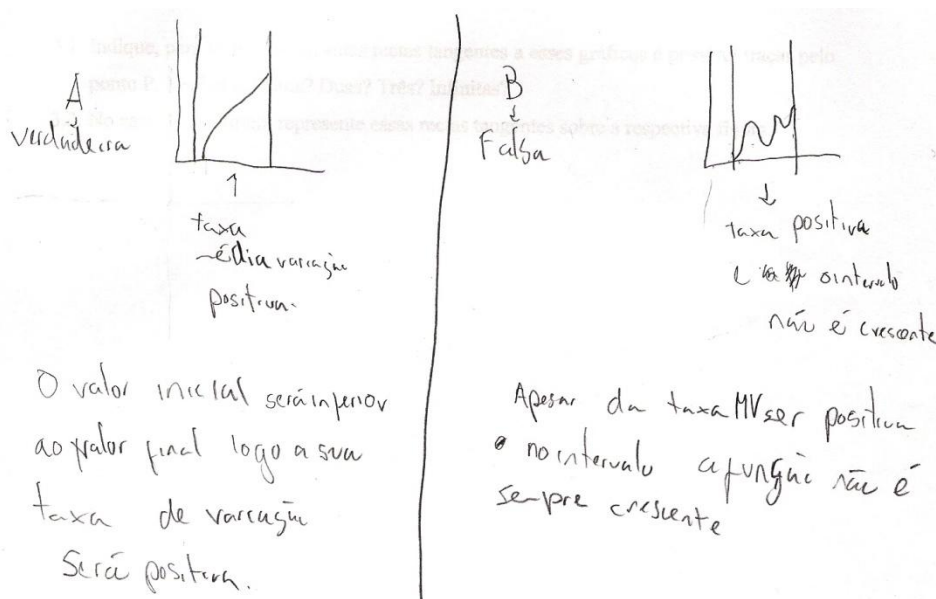 A
verdadeira
taxa
média variação
positiva.
O valor inicial será inferior
ao valor final logo a sua
taxa de variação
Será positiva.
B
Falsa
taxa positiva
e o intervalo
não é crescente
Apesar da taxa MV ser positiva
no intervalo a função não é
sempre crescente